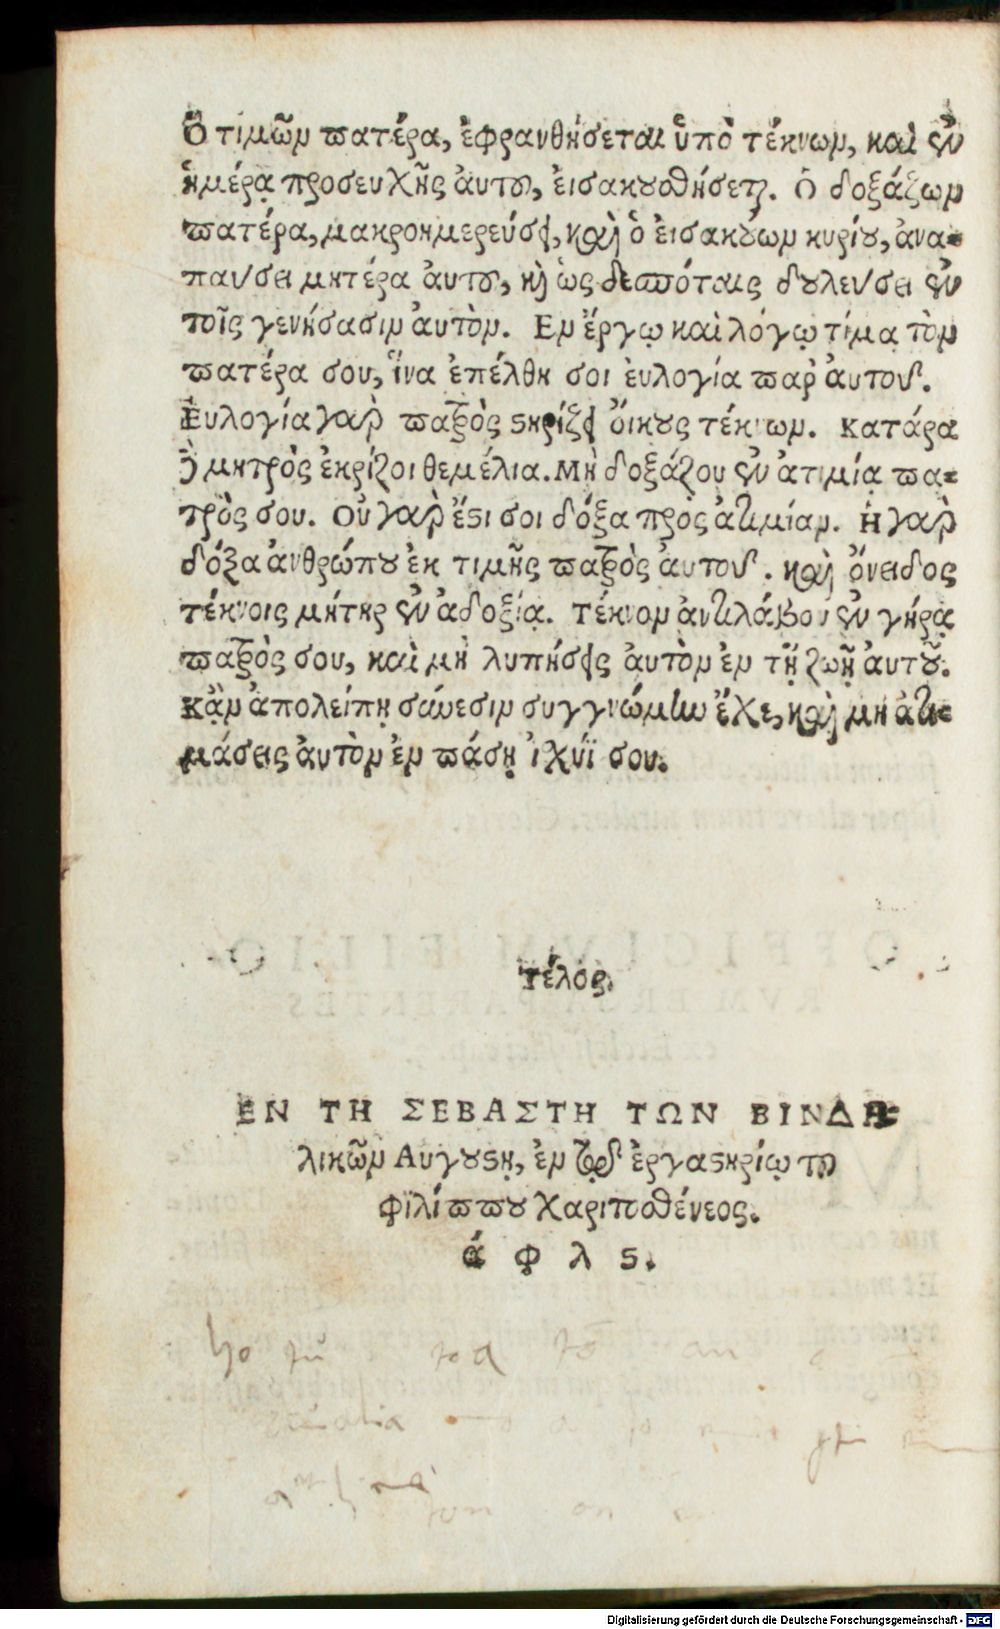 Ὁ τιμῶν πατέρα, ἐφρανθήσεται ὑπὸ τέκνων, καὶ ἐν
ἡμέρᾳ προσευχῆς ἀυτοῦ, ἐισακουσθήσεται. Ὁ δοξάζων
πατέρα, μακροημερεύσει, καὶ ὁ ἐισακούων κυρίου, ἀνα-
παύσει μητέρα ἀυτοῦ, καὶ ὡς δεσπόταις δουλεύσει ἐν
τοῖς γενήσασιν ἀυτὸν. Εν ἔργῳ καὶ λόγῳ τίμα τὸν
πατέρα σου, ἵνα ἐπέλθη σοι ἐυλογία παρ ἀυτοῦ.
Ευλογία γαρ πατρὸς στηρίζει ὄικους τέκνων. κατάρα
δὲ μητρὸς ἐκρίζοι θεμέλια. Μὴ δοξάζου ἐν ἀτιμίᾳ πα-
τρὸς σου. Οὐ γαρ ἔστι σοι δόξα πρὸς ἀτιμίαν. Ἡ γαρ
δόξα ἀνθρώπου ἐκ τιμῆς πατρὸς ἀυτοῦ. καὶ ὄνειδος
τέκνοις μήτηρ ἐν ἀδοξίᾳ. Τέκνον ἀντιλάβου ἐν γήρᾳ
πατρὸς σου, καὶ μὴ λυπήσεις ἀυτὸν ἐν τῇ ζωῇ ἀυτοῦ.
Κᾂν ἀπολείπῃ σύνεσιν συγγνώμην ἔχε, καὶ μὴ ἀτι-
μάσεις ἀυτὸν ἐν πάσῃ ἰχύϊ σου.
Τέλος.
ΕΝ ΤΗ ΣΕΒΑΣΤΗ ΤΩΝ ΒΙΝΔΗ-
λικῶν Αυγούστῃ, ἐν τῷ ἐργαστηρίῳ τοῦ
φϊλίππου Χαριτοσθένεος.
ά φ λ ς.
Digitalisierung gefördert durch die Deutsche Forschungsgemeinschaft - DFG